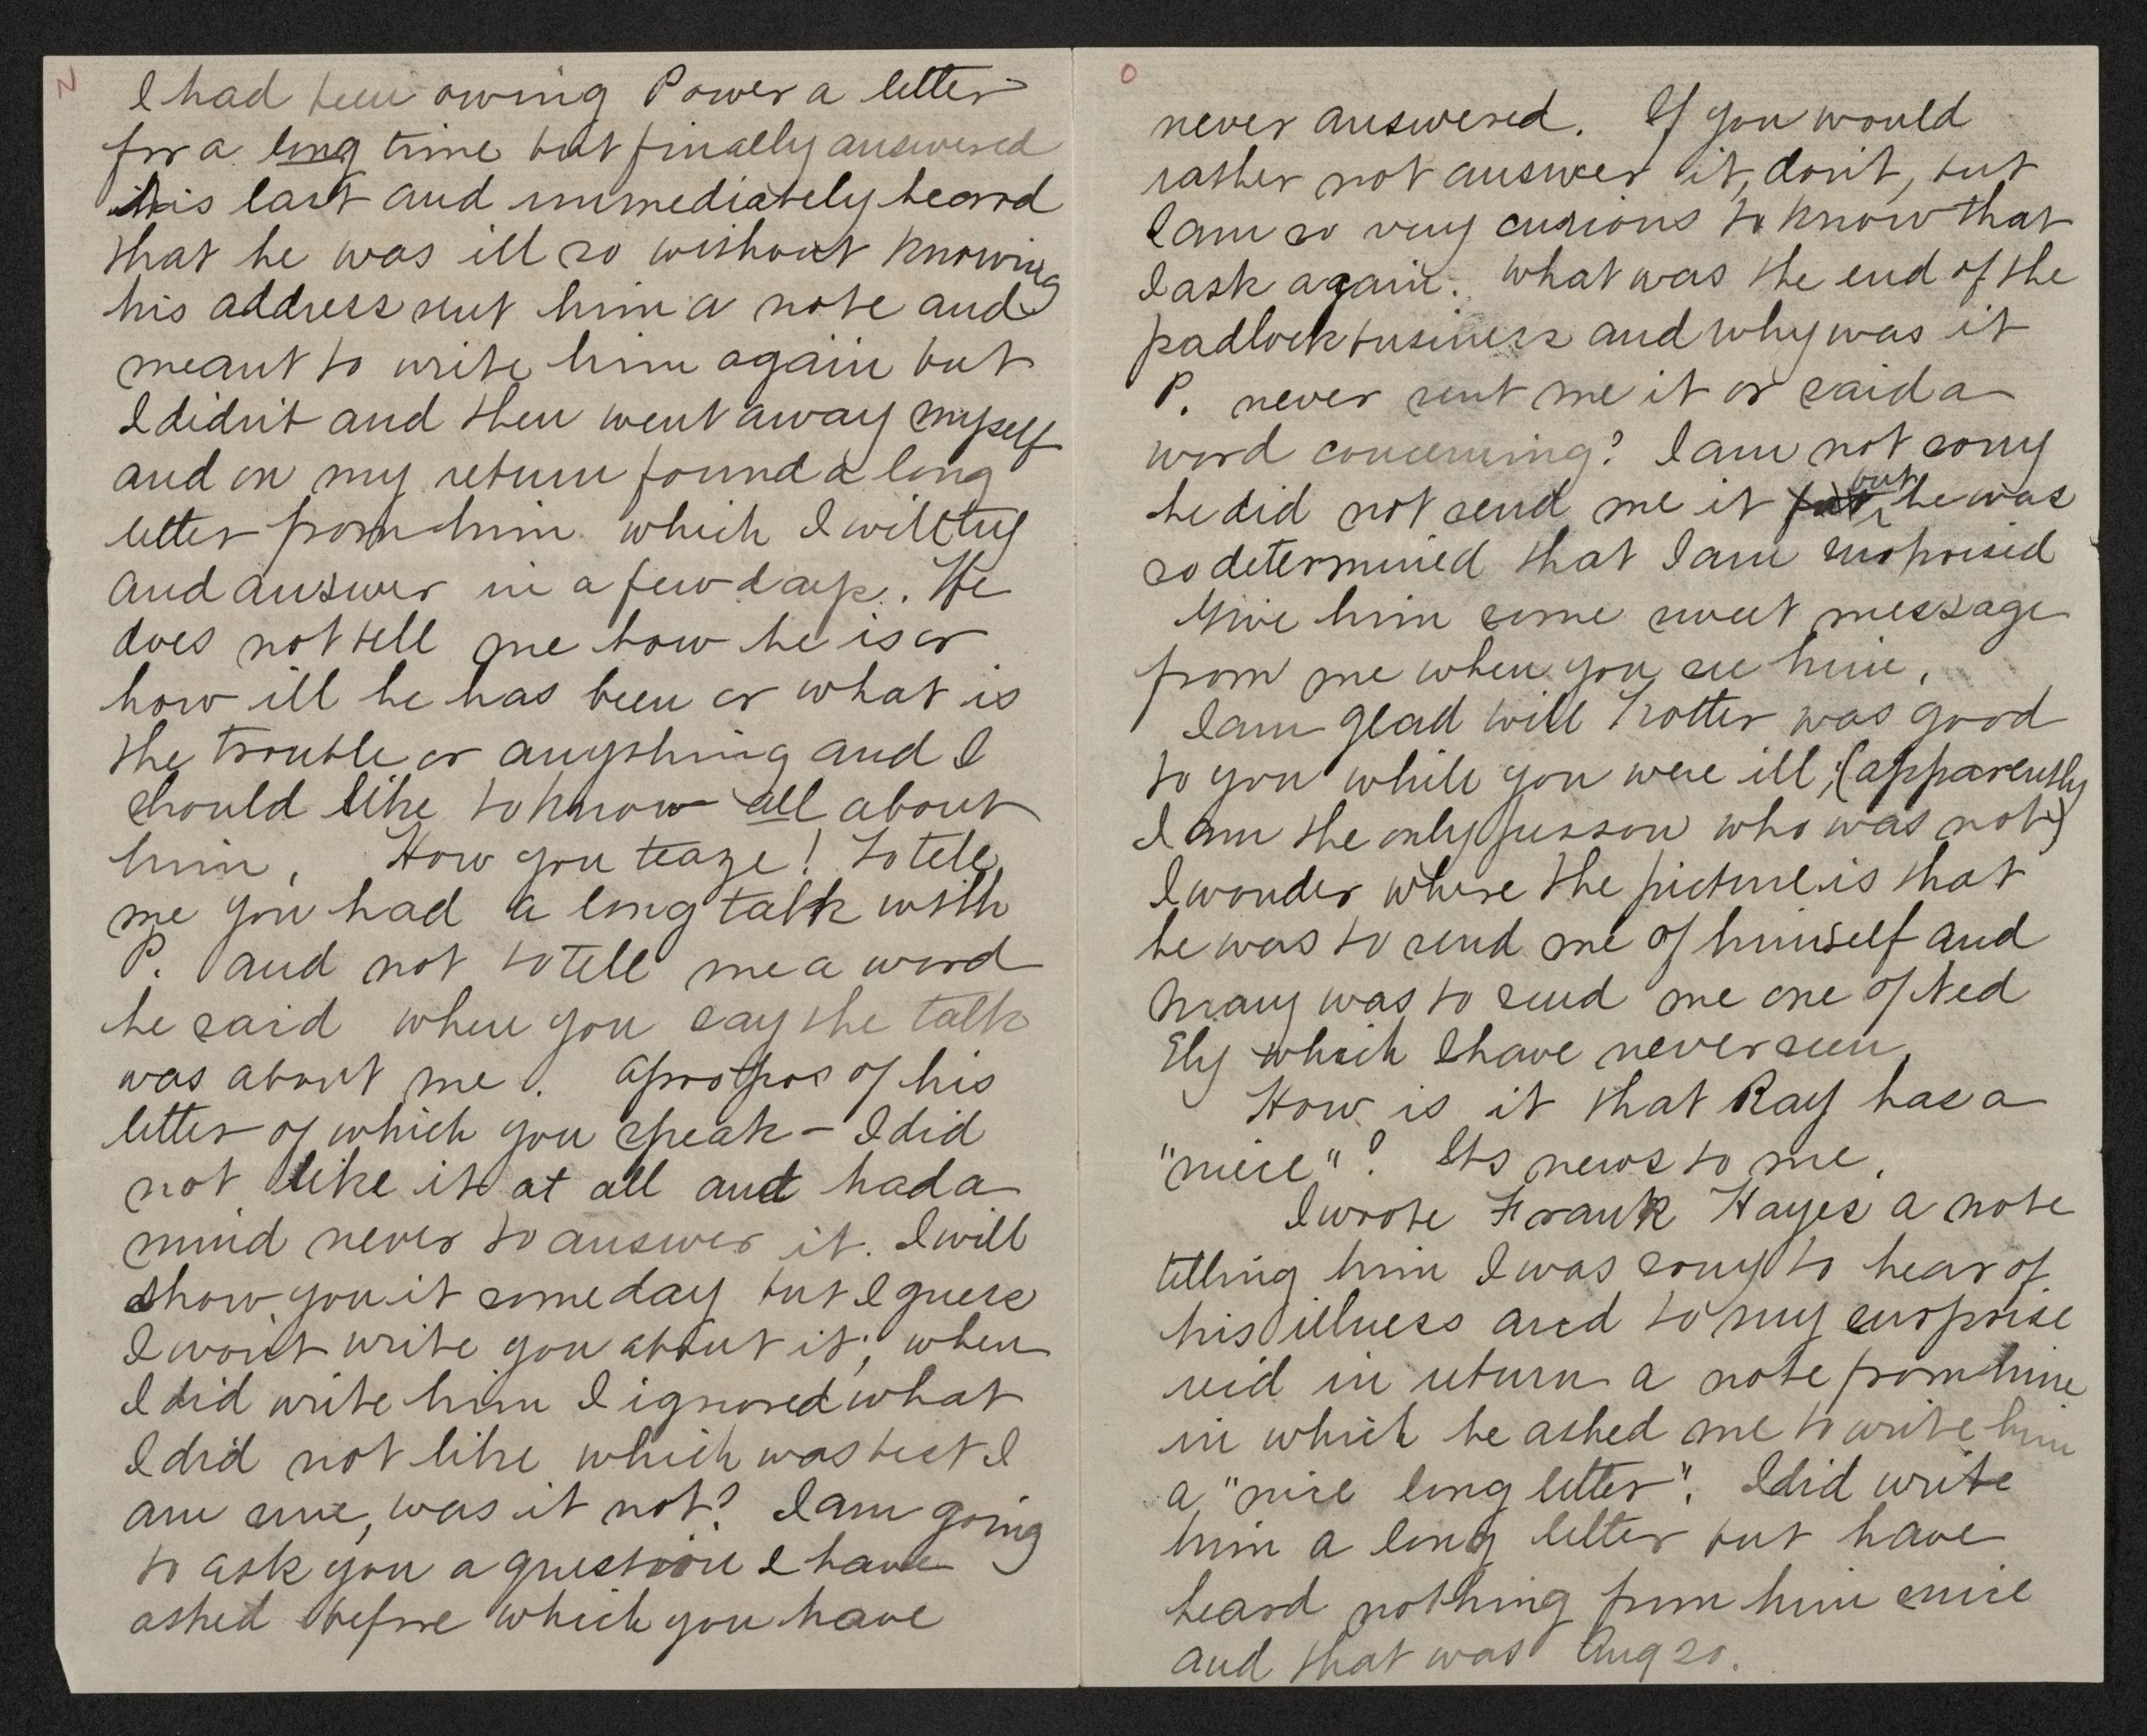 N
I had been owing Power a letter
for a long time but finally answered
his last and immediately heard
that he was ill so without knowing
his address sent him a note and
meant to write him again but
I didn't and then went away myself
and on my return found a long
letter from him which I will try
and answer in a few days. He
does not tell me how he is or
how ill he has been or what is
the trouble or anything and I
should like to know all about
him. How you teaze! To tell
me you had a long talk with
P. and not to tell me a word
he said when you say the talk
was about me. Apropos of his
letter of which you speak - I did
not like it at all and had a
mind never to answer it. I will
show you it someday but I guess
I won't write you about it; when
I did write him I ignored what
I did not like which was best I
am sure, was it not? I am going
to ask you a question I have
asked before which you have
O
never answered. If you would
rather not answer it, don't, but
I am so very curious to know that
I ask again. What was the end of the
padlock business and why was it
P. never sent me it or said a
word concerning? I am not sorry
but
he did not send me it he was
so determined that I am surprised
Give him some sweet message
from me when you see him.
I am glad Will Trotter was good
to you while you were ill, (apparently
I am the only person who was not)
I wonder where the picture is that
he was to send me of himself and
Mary was to send me one of Ned
Ely which I have never seen.
How is it that Ray has a
"niece"? Its news to me.
I wrote Frank Hayes a note
telling him I was sorry to hear of
his illness and to my surprise
rec'd in return a note from him
in which he asked me to write him
a "nice long letter". I did write
him a long letter but have
heard nothing from him since
and that was Aug 20.